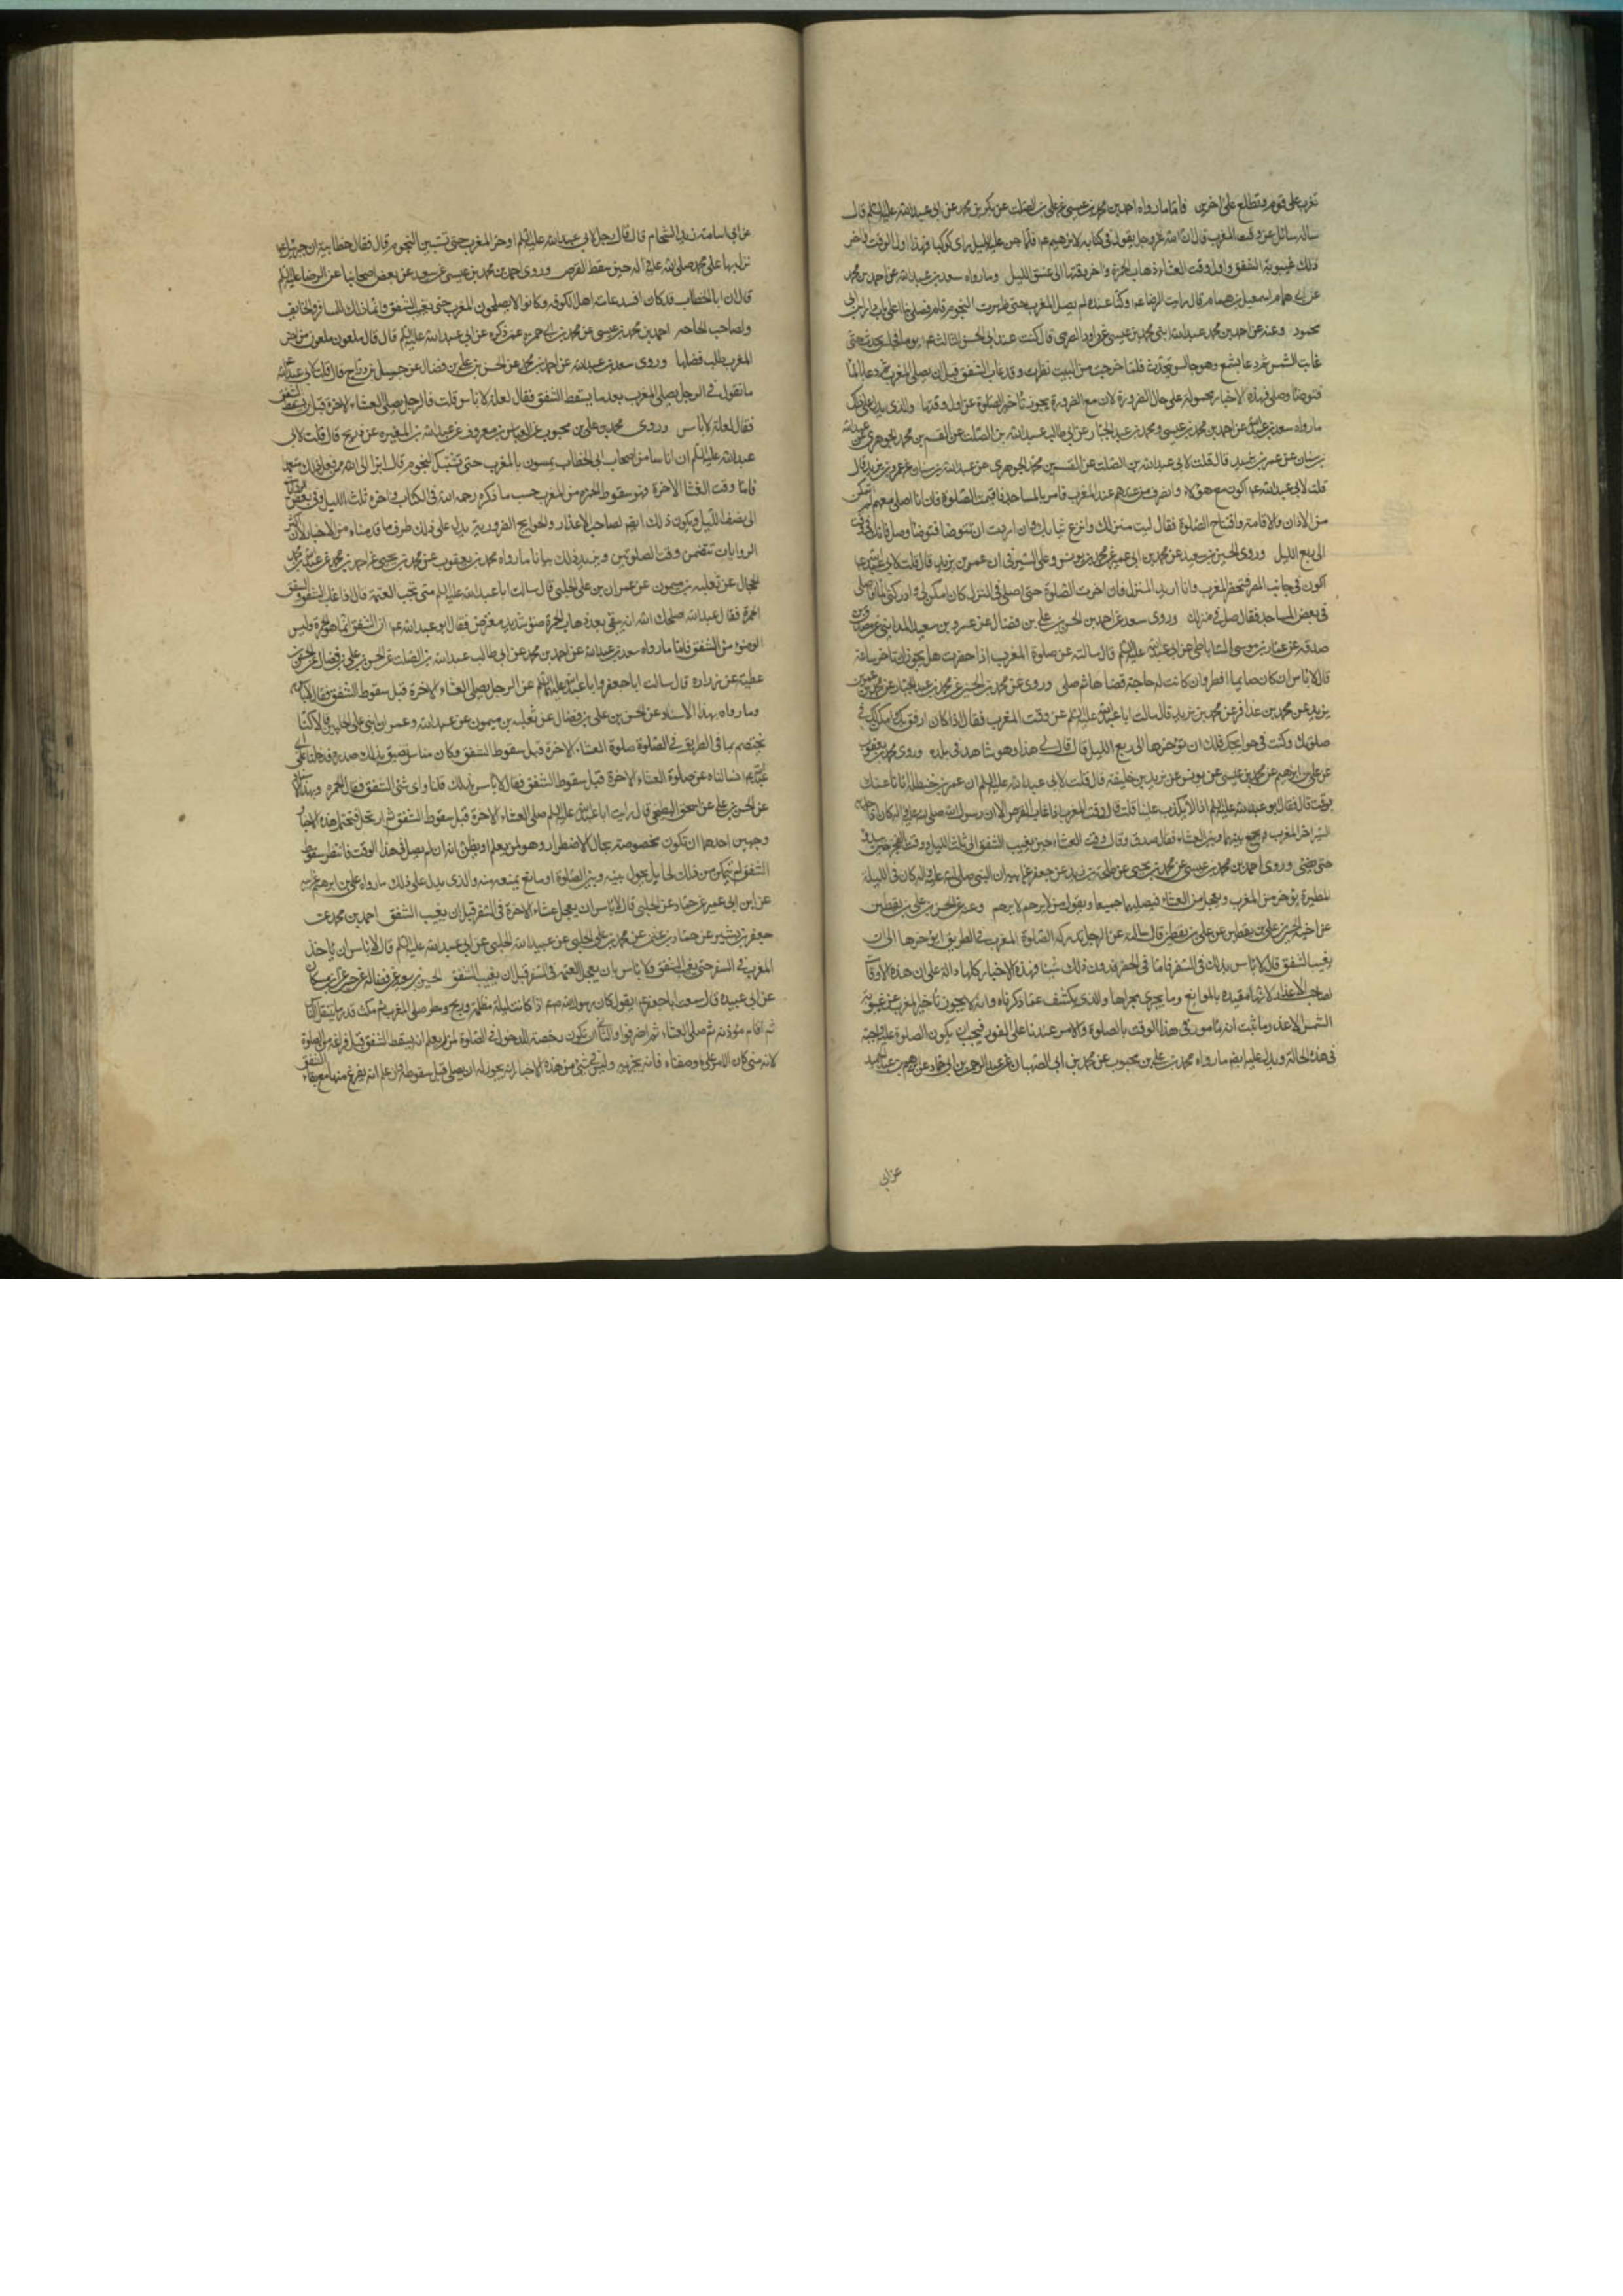 تغرب على قوم وتطلع على اخرين فاما ما رواه احمد بن محمد بن عيسى عن على بن الصلت عن بكر بن محمد عن ابى عبدالله عليه السلم قال
ساله سائل عن وقت المغرب قال ان الله عز وجل يقول فى كتابه لابرهيم ع م فلما جن عليه الليل راى كوكبا فهذا اول الوقت واخر
ذلك غيبوبة الشفق واول وقت العشاء ذهاب الحمرة واخر وقتها الى غسق الليل وما رواه سعد بن عبدالله عن احمد بن محمد
عن ابى همام اسمعيل بن همام قال رايت الرضا عم وكنا عنده لم يصل المغرب حتى ظهرت النجوم قام فصلى بنا على باب دار ابن ابى
محمود وعنه عن احمد بن محمد وعبدالله ابنى محمد بن عيسى عن داود الصرمى قال كنت عند ابى الحسن الثالث عم يوما فجلس يحدث حتى
غابت الشمس ثم دعا بشمع وهو جالس يتحدث فلما خرجت من البيت نظرت وقد غاب الشفق قبل ان يصلى المغرب ثم دعا بالماء
فتوضا وصلى فهذه الاخبار محمولة على حال الضرورة لان مع الضرورة يجوز تاخير الصلوة عن اول وقتها والذى يدل على ذلك
ما رواه سعد بن عبدالله عن احمد بن محمد بن عيسى ومحمد بن عبد الجبار عن ابى طالب عبدالله بن الصلت عن القسم بن محمد الجوهرى عن عبدالله
بن سنان عن عمر بن يزيد قال قلت لابى عبدالله
قلت لابى عبدالله عم اكون مع هؤلاء وانصرف من عندهم عند المغرب فامر بالمساجد فاقيمت الصلوة فان انا اصلى معهم لم استمكن
من الاذان والاقامة وافتتاح الصلوة فقال ايت منزلك وانزع ثيابك وان اردت ان تتوضا فتوضا وصل فانك فى وقت
الى ربع الليل وروى الحسين بن سعيد عن محمد بن ابى عمير عن محمد بن يونس وعلى الصيرفى عن عمر بن يزيد قال قلت لابى عبدالله عم
اكون فى جانب المصر فتحضر المغرب وانا اريد المنزل فان اخرت الصلوة حتى اصلى فى المنزل كان امكن لى وادركنى المساء افاصلى
فى بعض المساجد فقال صل فى منزلك وروى سعد عن احمد بن الحسن بن على بن فضال عن عمرو بن سعيد المداينى عن مصدق بن
صدقه عن عمار بن موسى الساباطى عن ابى عبدالله عليه السلم قال سالته عن صلوة المغرب اذا حضرت هل يجوز ان تؤخر ساعة
قال لا باس ان كان صايما افطر وان كانت له حاجة قضاها ثم صلى وروى عن محمد بن الحسين عن محمد بن عبد الجبار عن محمد بن عمر بن
يزيد عن محمد بن عذافر عن محمد بن يزيد قال سالت ابا عبدالله عليه السلم عن وقت المغرب فقال اذا كان ارفق بك وامكن لك فى
صلوتك وكنت فى حوايجك فلك ان تؤخرها الى ربع الليل قال قال لى هذا وهو شاهد فى بلده وروى محمد بن يعقوب
عن على بن ابرهيم عن محمد بن عيسى عن يونس عن يزيد بن خليفة قال قلت لابى عبدالله عليه السلم ان عمر بن حنظله اتانا عنك
بوقت قال فقال ابو عبدالله عليه السلم اذا لا يكذب علينا قلت قال وقت المغرب اذا غاب القرص الا ان رسول الله صلى الله عليه واله كان اذا جد به
السير اخر المغرب ويجمع بينها وبين العشاء فقال صدق وقال وقت العشاء حين يغيب الشفق الى ثلث الليل ووقت الفجر حين يبدو
حتى يضئ وروى احمد بن محمد بن عيسى عن محمد بن يحيى عن طلحة بن زيد عن جعفر عن ابيه ان النبى صلى الله عليه واله كان فى الليلة
المطيرة يؤخر من المغرب ويعجل من العشاء فيصليهما جميعا ويقول من لا يرحم لا يرحم وعنه عن الحسن بن على بن يقطين
عن اخيه الحسين بن على بن يقطين عن على بن يقطين قال سالته عن الرجل تدركه الصلوة المغرب فى الطريق ايؤخرها الى ان
يغيب الشفق قال لا باس بذلك فى السفر فاما فى الحضر فدون ذلك شيئا فهذه الاخبار كلها دالة على ان هذه الاوقات
لصاحب الاعذار لانها مقيدة بالموانع وما يجرى مجراها والذى يكشف عما ذكرناه وانه لا يجوز تاخير المغرب عن غيبوبة
الشمس الا عن عذر ما ثبت انه مامور فى هذا الوقت بالصلوة والامر عندنا على الفور فيجب ان يكون الصلوة عليه واجبة
فى هذه الحالة ويدل عليه ايضا ما رواه محمد بن على بن محبوب عن محمد بن ابى الصهبان عن عبد الرحمن بن ابى حماد عن ابرهيم بن عبد الحميد
عن ابى
عن ابى اسامة زيد الشحام قال قال رجل لابى عبدالله عليه السلم اؤخر المغرب حتى تستبين النجوم قال فقال خطابية ان جبرئيل عم
نزل بها على محمد صلى الله عليه واله حين سقط القرص وروى احمد بن محمد بن عيسى عن سعيد عن بعض اصحابنا عن الرضا عليه السلم
قال ان ابا الخطاب قد كان افسد عامة اهل الكوفه وكانوا لا يصلون المغرب حتى يغيب الشفق وانما ذلك للمسافر والخايف
ولصاحب الحاجه احمد بن محمد بن عيسى عن محمد بن ابى حمزه عمن ذكره عن ابى عبدالله عليه السلم قال قال ملعون ملعون من اخر
المغرب طلب فضلها وروى سعد بن عبدالله عن احمد بن محمد عن الحسن بن على بن فضال عن جميل بن دراج قال قلت لابى عبدالله عم
ما تقول فى الرجل يصلى المغرب بعد ما يسقط الشفق فقال لعلة لا باس قلت فالرجل يصلى العشاء الاخرة قبل ان يسقط الشفق
فقال لعلة لا باس وروى محمد بن على بن محبوب عن العباس بن معروف عن عبدالله بن المغيره عن ذريح قال قلت لابى
عبدالله عليه السلم ان اناسا من اصحاب ابى الخطاب يمسون بالمغرب حتى تشتبك النجوم قال ابرا الى الله ممن فعل ذلك متعمدا
فاما وقت العشا الاخرة فهو سقوط الحمرة من المغرب حسب ما ذكره رحمه الله فى الكتاب واخره ثلث الليل وفى بعض الروايات
الى نصف الليل ويكون ذلك ايضا لصاحب الاعذار والحوايج الضرورية يدل على ذلك طرف ما قدمناه من الاخبار لان اكثر
الروايات تتضمن وقت الصلوتين ويزيد ذلك بيانا ما رواه محمد بن يعقوب عن محمد بن يحيى عن احمد بن محمد عن عبدالله بن محمد
الحجال عن ثعلبه بن ميمون عن عمران بن على الحلبى قال سالت ابا عبدالله عليه السلم متى تجب العتمة قال اذا غاب الشفق والشفق
الحمرة فقال عبدالله اصلحك الله انه يبقى بعد ذهاب الحمرة ضوء شديد معترض فقال ابو عبدالله عم ان الشفق انما هو الحمرة وليس
الضوء من الشفق فاما ما رواه سعد بن عبدالله عن احمد بن محمد عن ابى طالب عبدالله بن الصلت عن الحسن بن على بن فضال عن الحسن بن
عطيه عن زراره قال سالت ابا جعفر وابا عبدالله عليهما السلم عن الرجل يصلى العشاء الاخرة قبل سقوط الشفق فقالا لا باس به
وما رواه بهذا الاسناد عن الحسن بن على بن فضال عن ثعلبه بن ميمون عن عبيدالله وعمران ابنى على الحلبيين قالا كنا
نختصم بما فى الطريق فى الصلوة صلوة العشاء الاخرة قبل سقوط الشفق وكان منا من يضيق بذلك صدره فدخلنا على ابى
عبدالله عم فسالناه عن صلوة العشاء الاخرة قبل سقوط الشفق فقال لا باس بذلك قلنا واى شئ الشفق فقال الحمره وبهذا الاسناد
عن الحسن بن على عن اسحق البطيخى قال رايت ابا عبدالله عليه السلم صلى العشاء الاخرة قبل سقوط الشفق ثم ارتحل فتحتمل هذه الاخبار
وجهين احدهما ان تكون مخصوصة بحال الاضطرار وهو لمن يعلم او يظن انه ان لم يصل فى هذا الوقت فانتظر سقوط
الشفق لم يتمكن من ذلك لحايل يحول بينه وبين الصلوة او مانع يمنعه منه والذى يدل على ذلك ما رواه على بن ابرهيم عن ابيه
عن ابن ابى عمير عن حماد عن الحلبى قال لا باس ان يعجل عشاء الاخرة فى السفر قبل ان يغيب الشفق احمد بن محمد عن
جعفر بن بشير عن حماد بن عثمن عن محمد بن على الحلبى عن عبيدالله الحلبى عن ابى عبدالله عليه السلم قال لا باس ان يؤخر
المغرب فى السفر حتى يغيب الشفق ولا باس بان يعجل العتمة فى السفر قبل ان يغيب الشفق الحسين بن سعيد عن فضاله عن حسين عن ابن مسكان
عن ابى عبيده قال سمعت ابا جعفر عم يقول كان رسول الله صعم اذا كانت ليلة مظلمة وريح ومطر صلى المغرب ثم مكث قدر ما يتنفل الناس
ثم اقام مؤذنه ثم صلى العشاء ثم انصرفوا والثانى ان تكون رخصة للدخول فى الصلوة لمن يعلم انه يسقط الشفق قبل فراغه من الصلوة
لانه متى كان الامر على ما وصفناه فانه يجزيه وليس فى شئ من هذه الاخبار انه يجوز له ان يصلى قبل سقوطه وان علم انه يفرغ منها مع بقاء الشفق